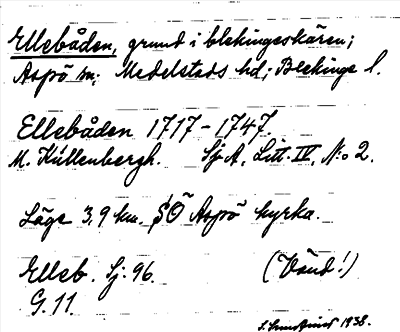 Ellebåden, grund i blekingeskären;
Aspö sn; Medelstads hd; Blekinge l.
Ellebåden 1717-1747.
M. Kullenbergh. Sj. A, Litt. IV, N:o 2.
Läge 3,9 km. SÖ Aspö kyrka.
Elleb. Sj: 96. (Vänd!)
G. 11.
1938.